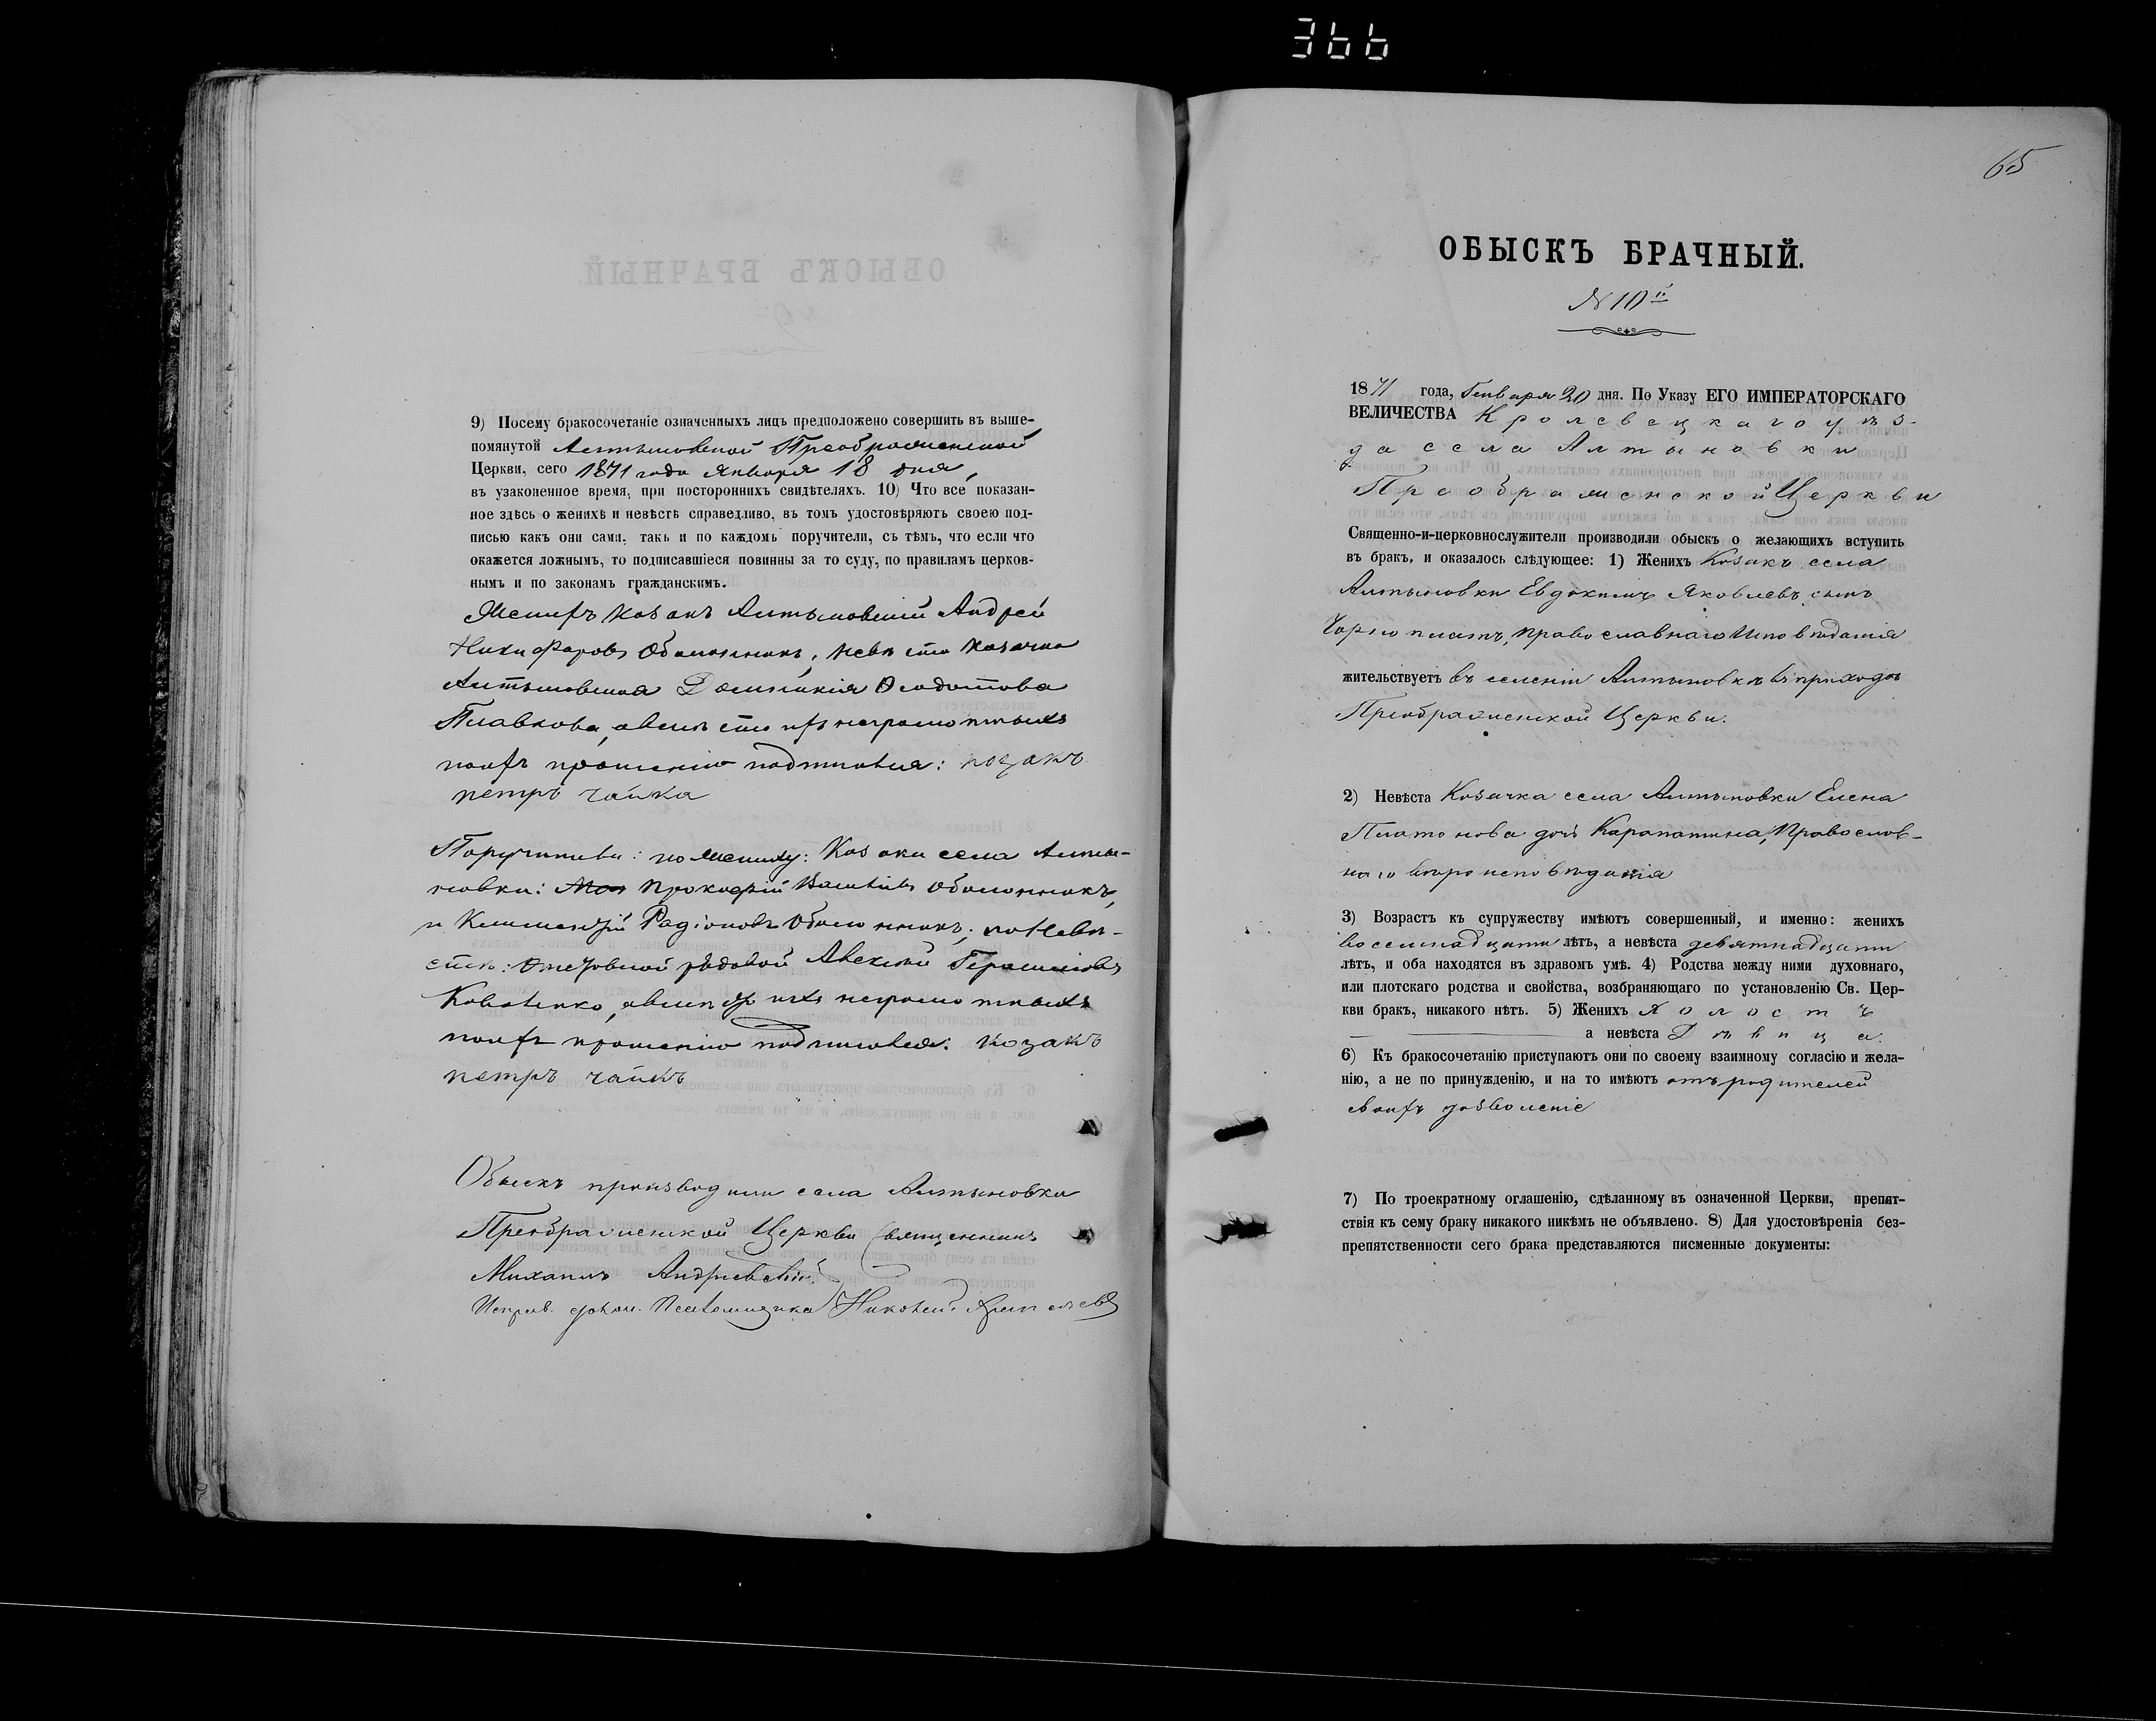 366
9) Посему бракосочетаніе означенныхъ лицъ предположено совершить въ выше-
помянутой Алтыновской Преображенской
Церкви, сего 1871 года Января 18 дня,
въ узаконенное время, при постороннихъ свидѣтеляхъ. 10) Что все показан-
ное здѣсь о женихѣ и невѣстѣ справедливо, въ томъ удостовѣряютъ своею под-
писью какъ они сами, такъ и по каждомъ поручители, съ тѣмъ, что если что
окажется ложнымъ, то подписавшіеся повинны за то суду, по правиламъ церков-
нымъ и по законамъ гражданскимъ.
Женихъ Козакъ Алтыновскій Андрей
Никифоровъ Оболонникъ, невѣста козачка
Алтыновская Домникія Ѳеодотова
Плавкова, а вмѣсто ихъ неграмотныхъ
по ихъ прошенію подписался: козакъ
петръ чайка
Поручители: по женихѣ: Козаки села Алты-
новки: Прокофій Васильевъ Оболонникъ,
и Климентій Радіоновъ Оболонникъ; по Невѣ-
стѣ: рядовой Алексѣй Герасимовъ
Коваленко, а вмѣсто ихъ неграмотныхъ
по ихъ прошенію подписался: козакъ
петръ чайка
Обыскъ производили села Алтыновки
Преображенской Церкви Священникъ
Михаилъ Андріевскій
Исправ. долж. Псаломщика Николай
65
ОБЫСКЪ БРАЧНЫЙ.
№ 10й
1871 года, Генваря 20 дня. По Указу ЕГО ИМПЕРАТОРСКАГО
ВЕЛИЧЕСТВА Кролевецкаго уѣз-
да села Алтыновки
Преображенской Церкви
Священно-и-церковнослужители производили обыскъ о желающихъ вступить
въ бракъ, и оказалось слѣдующее: 1) Женихъ Козакъ села
Алтыновки Евдокимъ Яковлевъ сынъ
Чорноплатъ, православнаго Исповѣданія
жительствуетъ въ селеніи Алтыновкѣ въ приходѣ
Преображенской Церкви.
2) Невѣста Козачка села Алтыновки Елена
Платонова дочь Карапатина, Православ-
наго вѣроисповѣданія
3) Возрастъ къ супружеству имѣютъ совершенный, и именно: женихъ
восемнадцати лѣтъ, а невѣста девятнадцати
лѣтъ, и оба находятся въ здравомъ умѣ. 4) Родства между ними духовнаго,
или плотскаго родства и свойства, возбраняющаго по установленію Св. Цер-
кви бракъ, никакого нѣтъ. 5) Женихъ Холостъ
а невѣста Дѣвица.
6) Къ бракосочетанію приступаютъ они по своему взаимному согласію и жела-
нію, а не по принужденію, и на то имѣютъ отъ родителей
своихъ дозволеніе
7) По троекратному оглашенію, сдѣланному въ означенной Церкви, препят-
ствія къ сему браку никакого никѣмъ не объявлено. 8) Для удостовѣренія без-
препятственности сего брака представляются писменные документы: